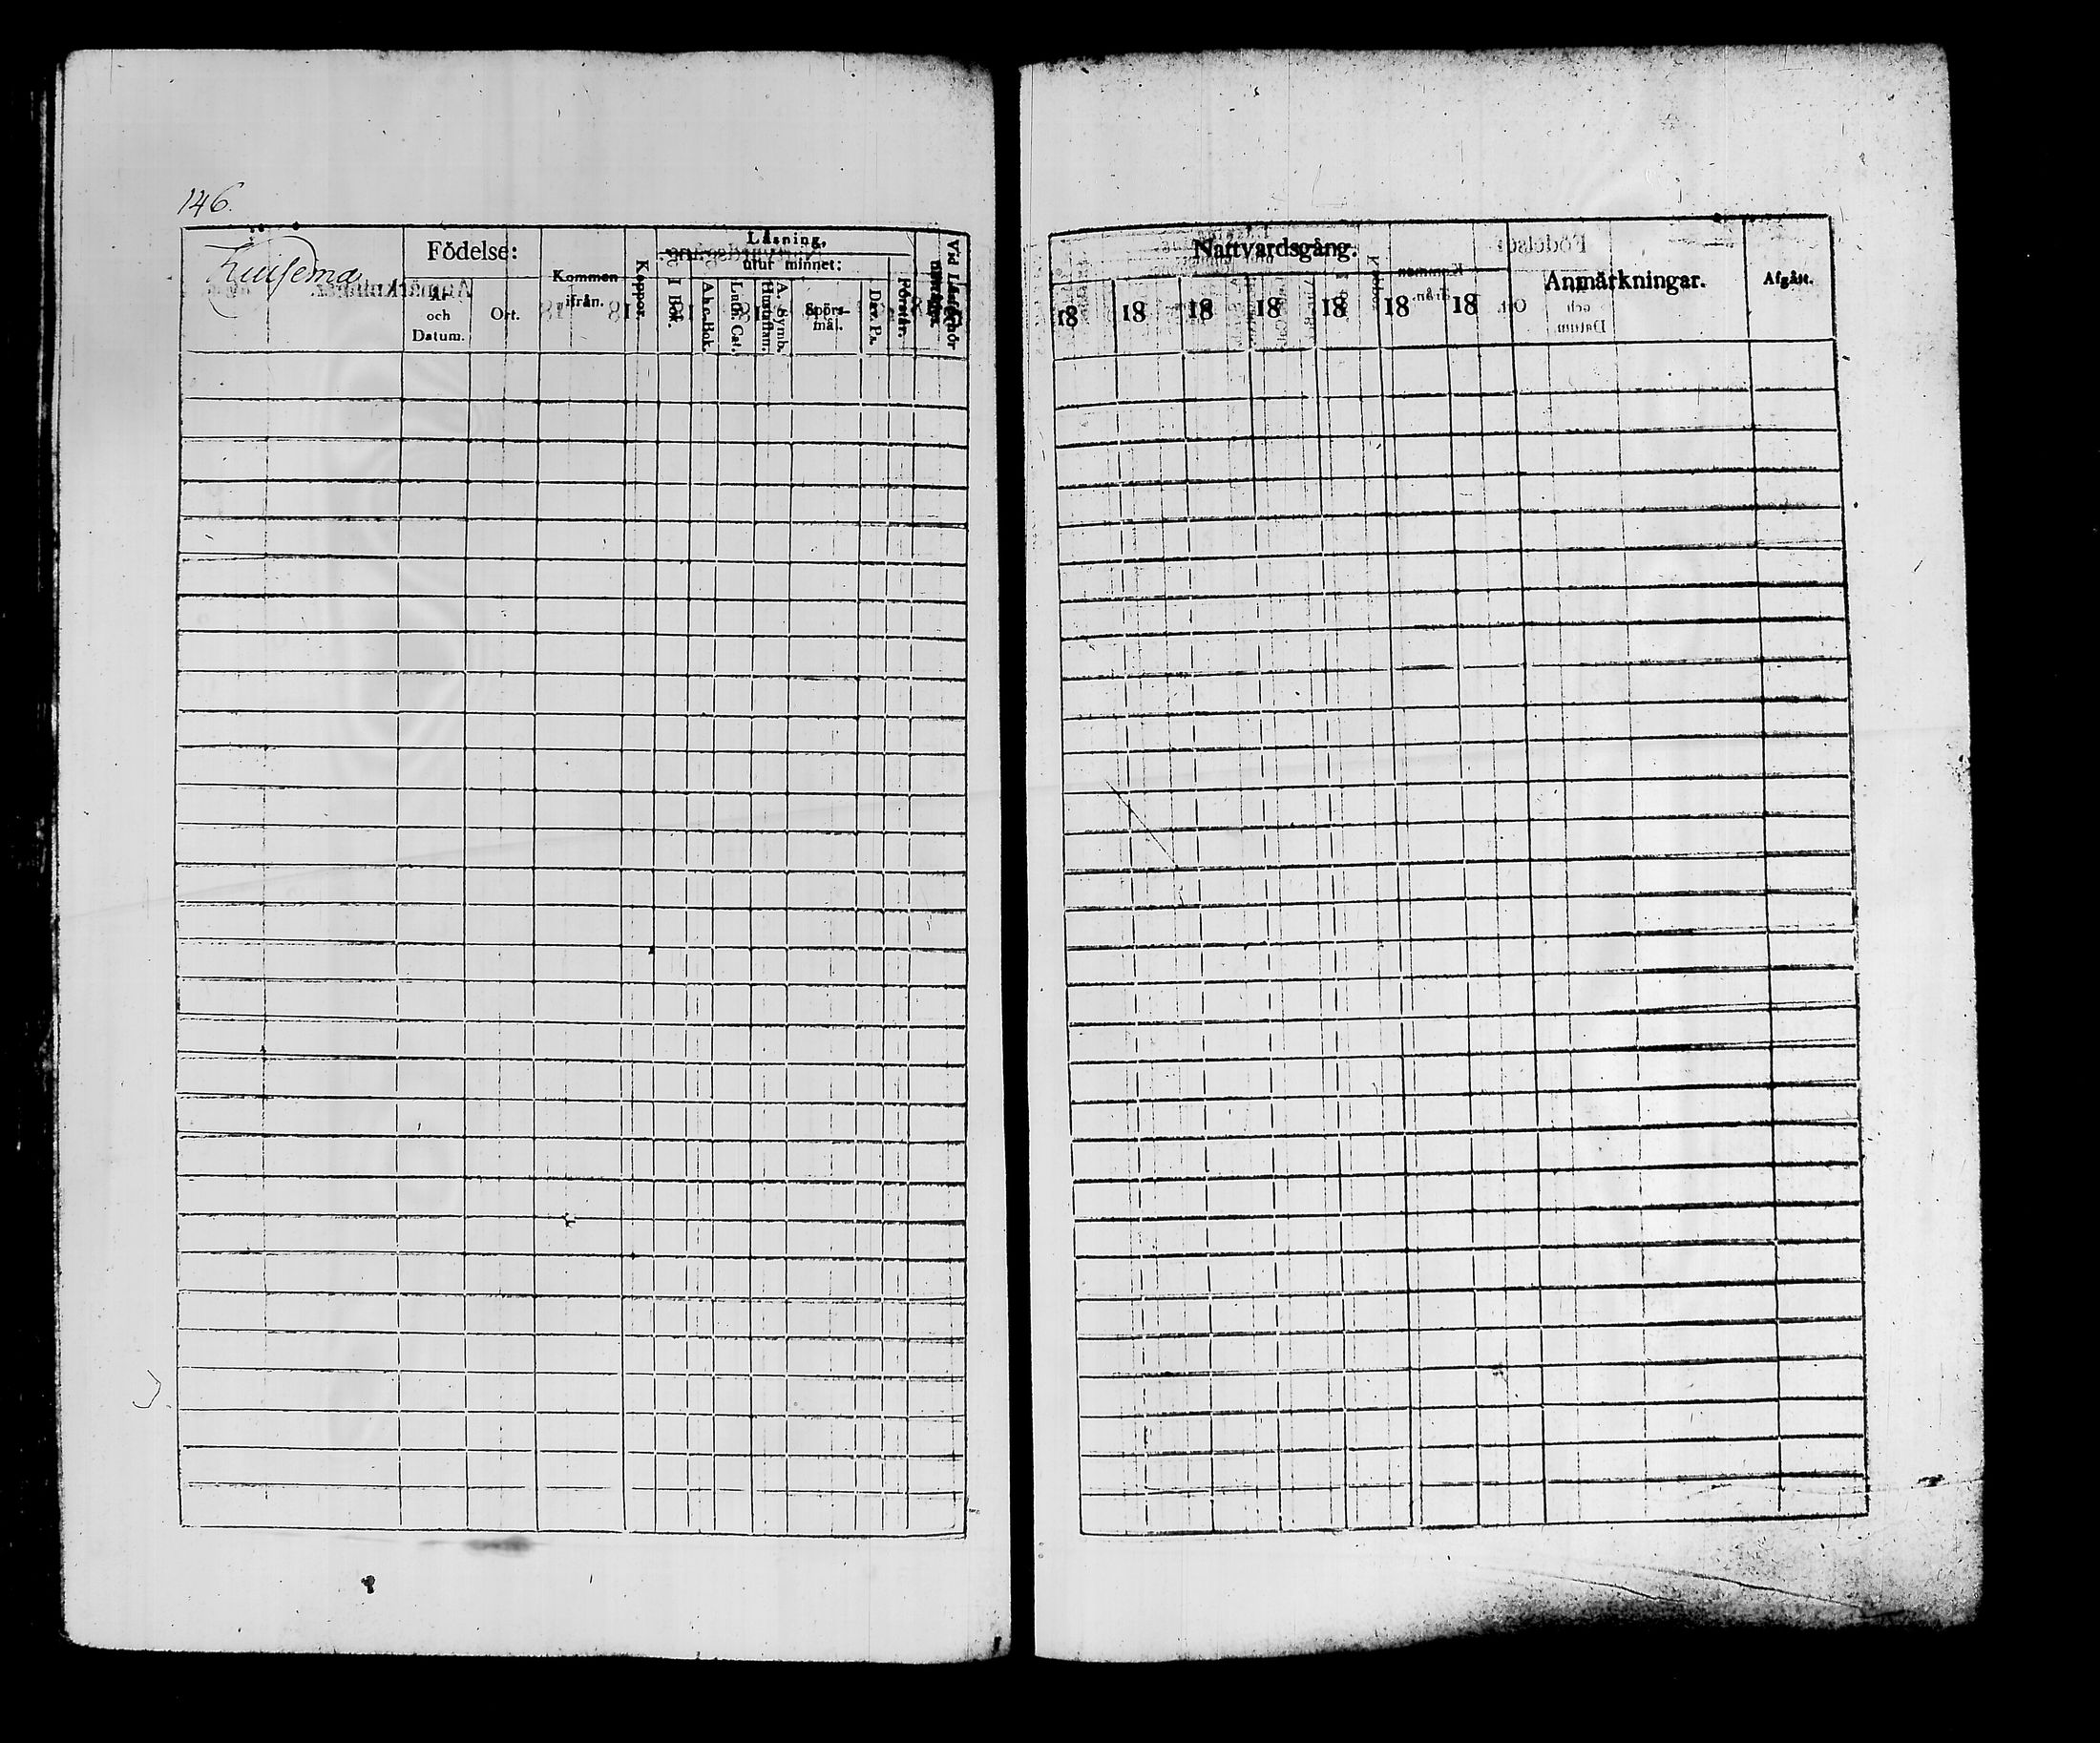 146.
Födelse:
År och Datum.
Ort.
Kommen ifrån.
Koppor.
Läsning,
I Bok.
utur minnet:
A.b.c. Bok.
Luth. Cat.
Hustaflan.
A. Symb.
Spörs-
mål.
Dav. Ps.
Förstår.
Vid Läsförhör
Nattvardsgång.
18 18 18 18 18 18 18
Anmärkningar.
Afgått.